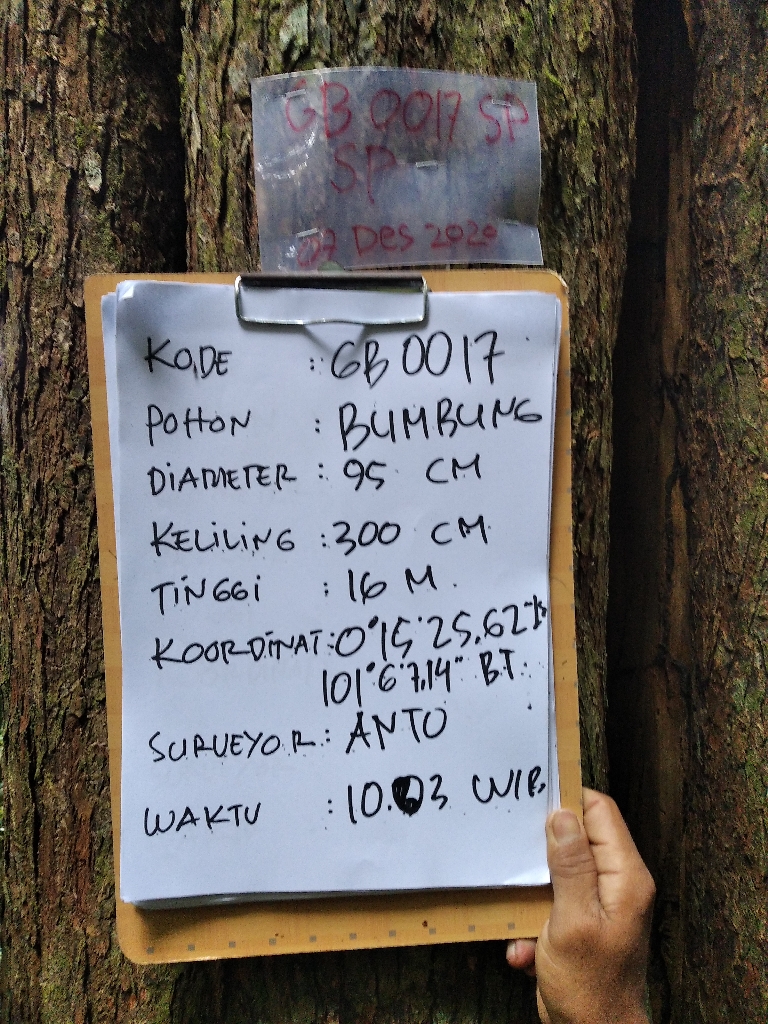 GB 0017 SP
SP
07 Des 2020
KODE : GB 0017
POHON : BUMBUNG
DIAMETER : 95 CM
KELILING : 300 CM
TINGGI : 16 M.
KOORDINAT : 0°15'25.62"
101°6'7.14" BT.
SURVEYOR : ANTO
WAKTU : 10.03 WIB.